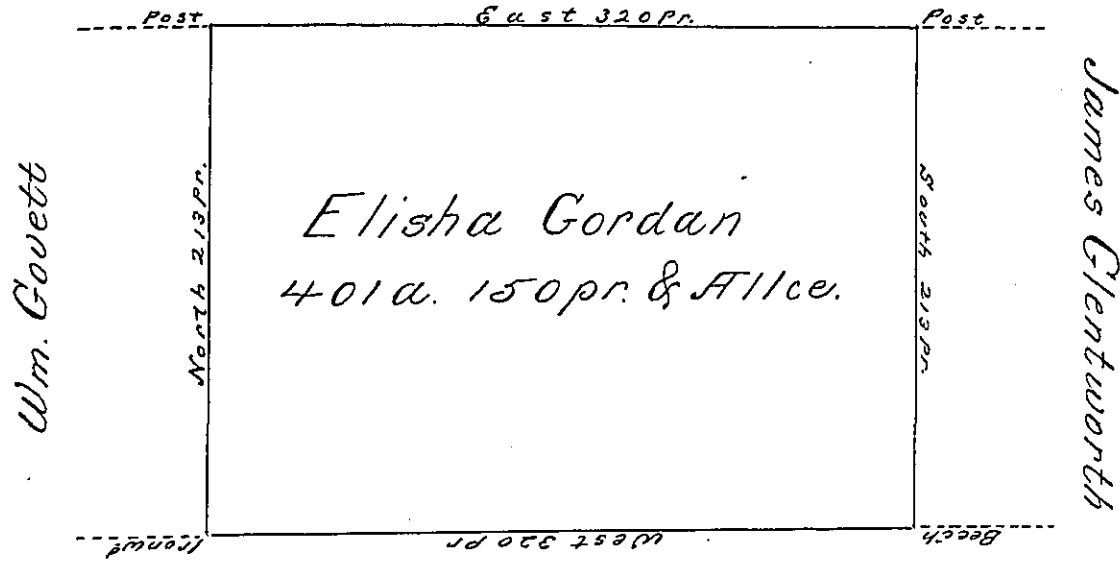 Post East 320 pr. Post
Wm. Govett
North 213 pr.
Elisha Gordan
401 a. 150 pr. & Allce.
South 213 pr.
James Glentworth
Ironwd West 320 pr Beech